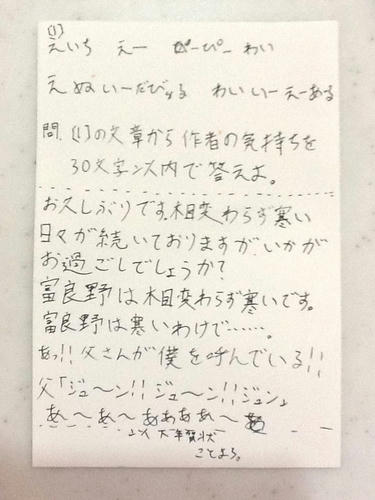 (1)
えいち えー ぴーぴー わい
えぬ いーだびゅる わい いー えーある
問.(1)の文章から作者の気持ちを
30文字以内で答えよ。
お久しぶりです。相変わらず寒い
日々が続いておりますが、いかが
お過ごしでしょうか?
富良野は相変わらず寒いです。
富良野は寒いわけで……。
あっ!!父さんが僕を呼んでいる!!
父「ジュ〜ン!!ジュ〜ン!!ジュン」
あ〜あ〜あああああ〜あ
以上 年賀状
ことよろ。